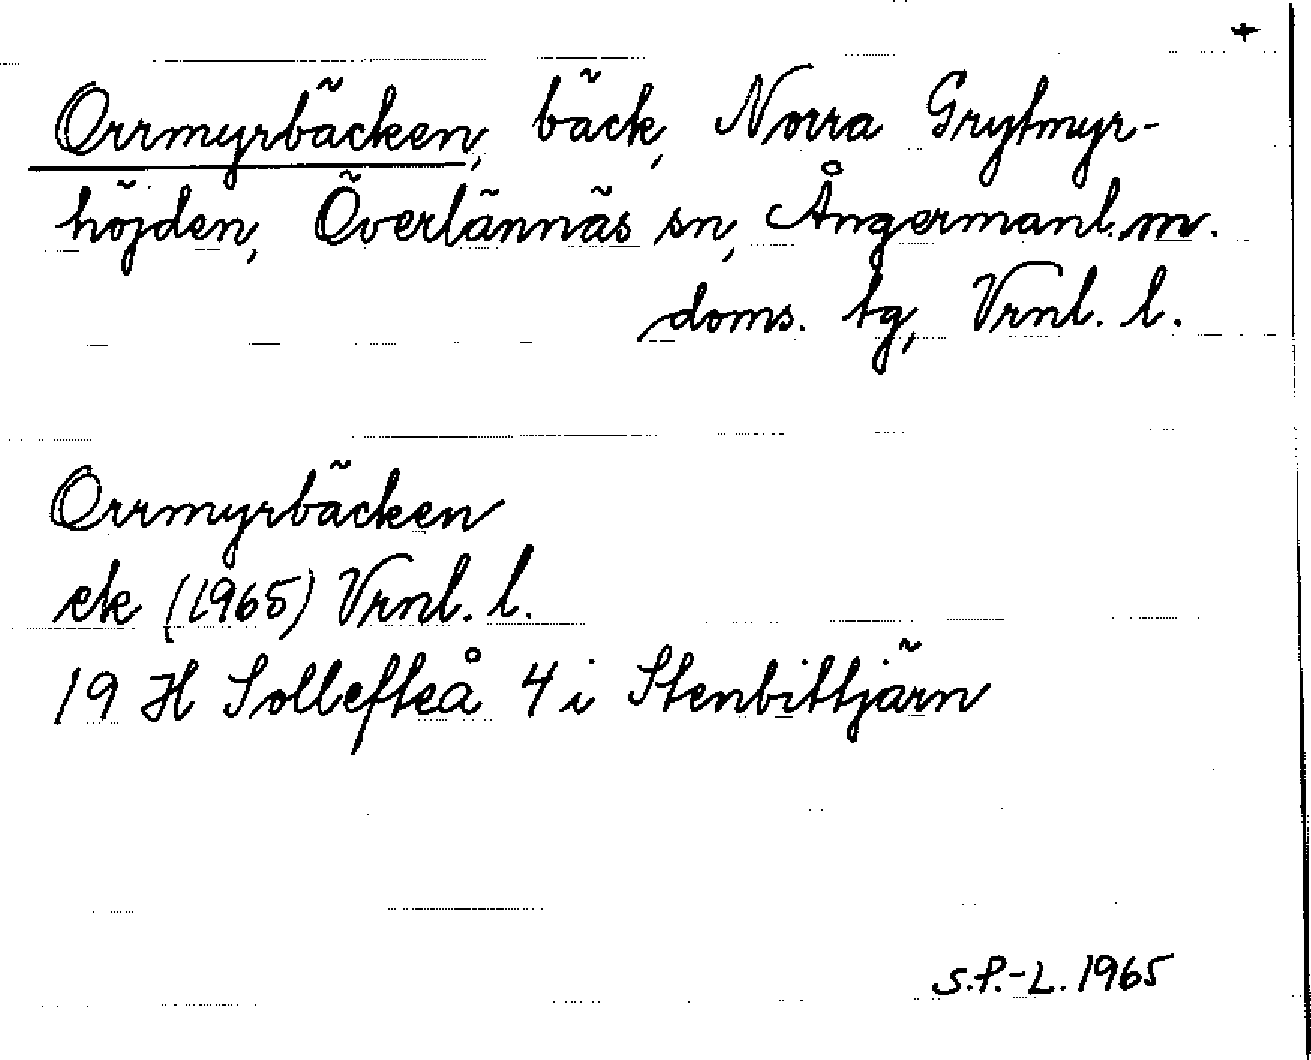 +
Orrmyrbäcken, bäck, Norra Grytmyr-
höjden, Överlännäs sn, Ångermanl. m.
doms. tg, Vrnl. l.
Orrmyrbäcken
ek (1965) Vrnl. l.
19 H Sollefteå 4 i Stenbittjärn
S.P.-L. 1965